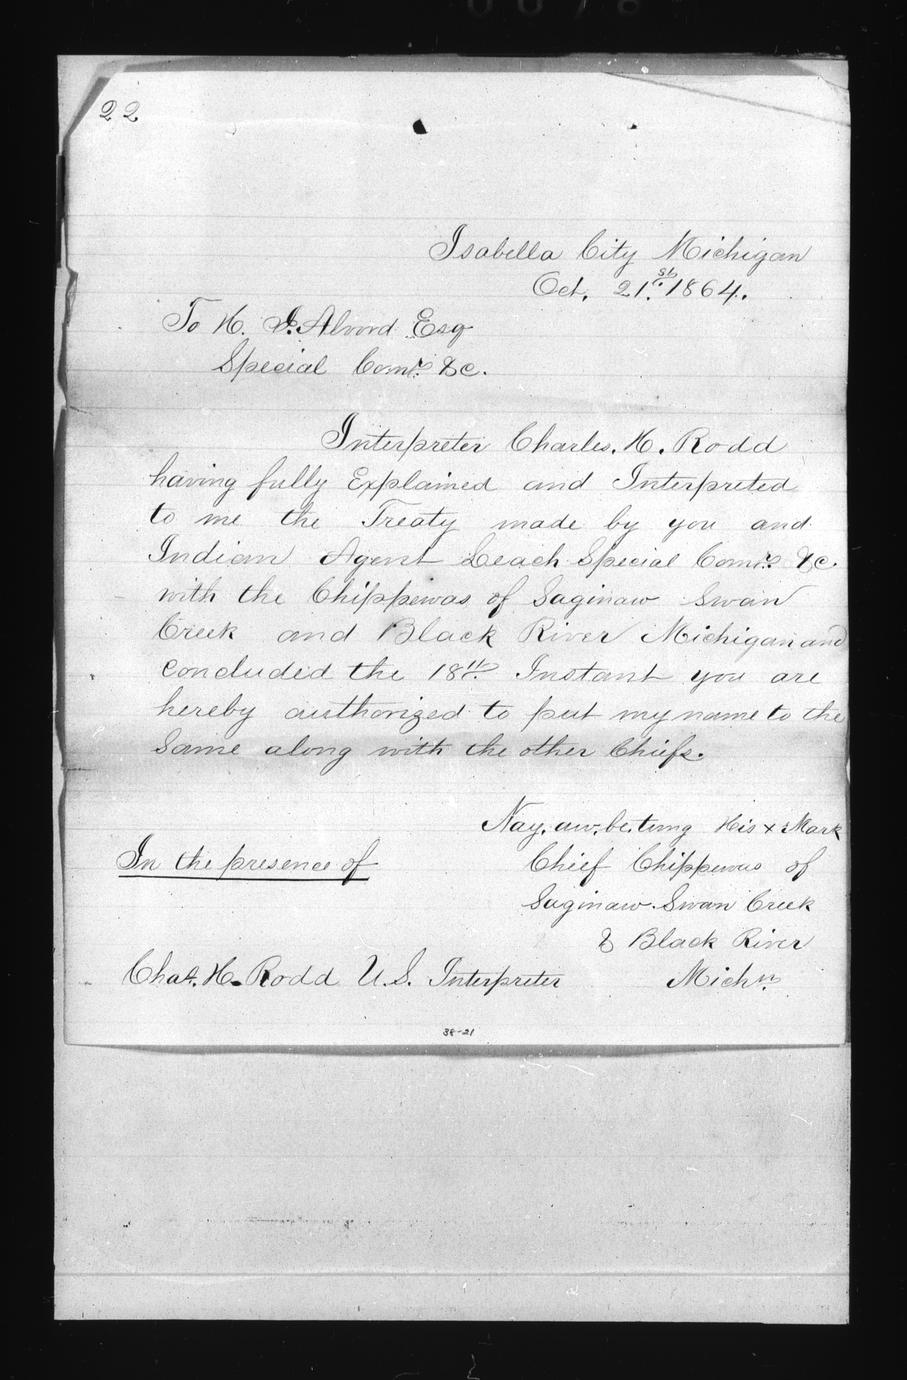 22
Isabella City Michigan
Oct. 21st. 1864.
To H. J. Alvord Esq
Special Comr. &c.
Interpreter Charles. H. Rodd
having fully Explained and Interpreted
to me the Treaty made by you and
Indian Agent Leach Special Comrs. &c.
with the Chippewas of Saginaw Swan
Creek and Black River Michigan and
concluded the 18th Instant you are
hereby authorized to put my name to the
Same along with the other Chiefs.
Nay. aw. be. tung His x Mark
In the presence of
Chief Chippewas of
Saginaw Swan Creek
& Black River
Chas. H. Rodd U.S. Interpreter
Michn.
38-21